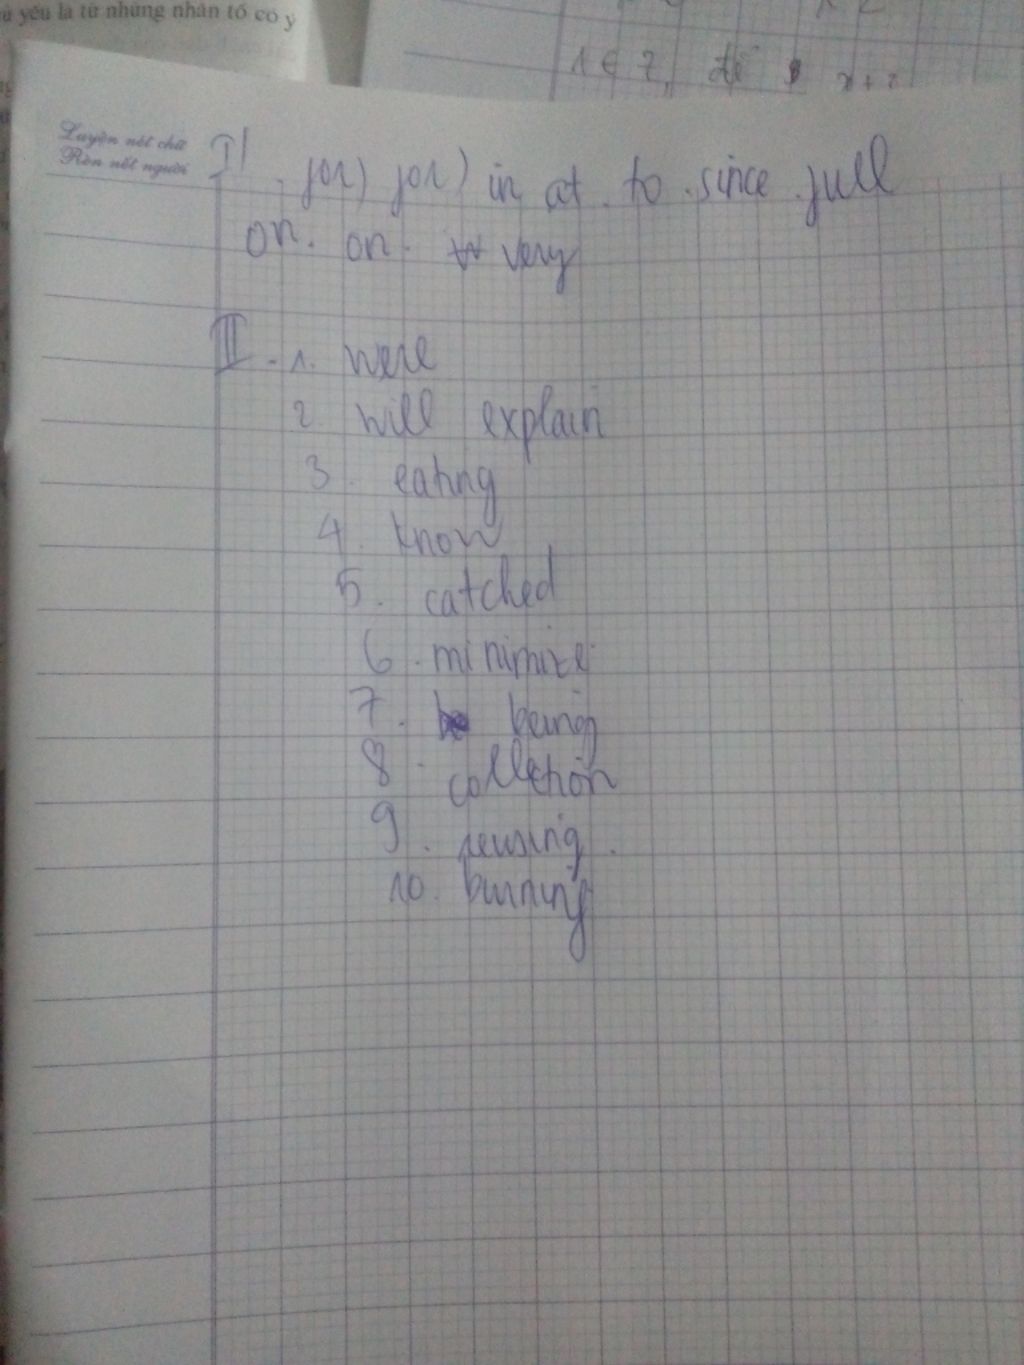 yếu là từ những nhân tố có ý
1 ∈ Z, để x + 2
Luyện nét chữ
Rèn nét người
II . for) for) in at. to. since. full
on. on. very
III. 1. were
2. will explain
3. eating
4. know
5. catched
6. minimize
7. being
8. collection
9. reusing.
10. burning